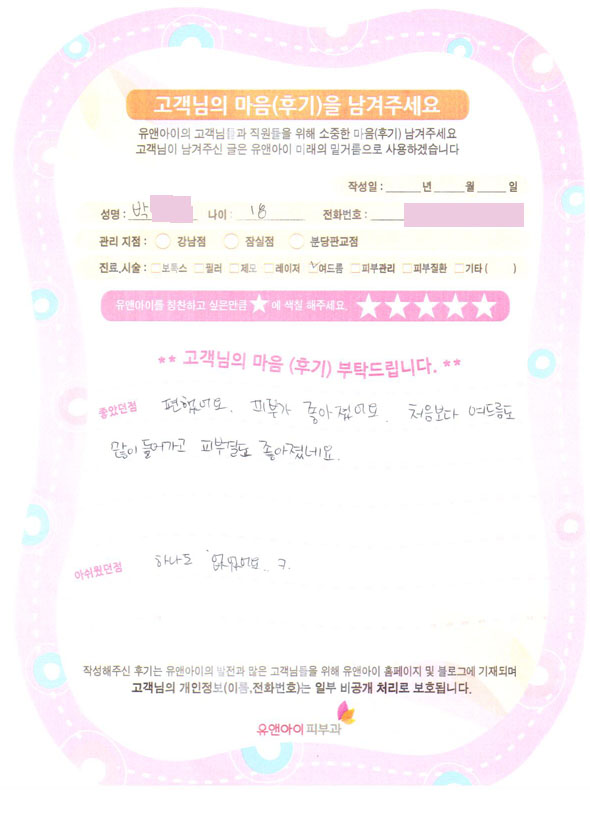 고객님의 마음(후기)을 남겨주세요
유앤아이의 고객님들과 직원들을 위해 소중한 마음(후기) 남겨주세요
고객님이 남겨주신 글은 유앤아이 미래의 밑거름으로 사용하겠습니다
작성일 : 년 월 일
성명 : 박 나이 : 18 전화번호 :
관리 지점 : 강남점 잠실점 분당판교점
진료,시술 : 보톡스 필러 제모 레이저 여드름 피부관리 피부질환 기타 ( )
유앤아이를 칭찬하고 싶은만큼 ★에 색칠 해주세요. ★★★★★
** 고객님의 마음 (후기) 부탁드립니다. **
좋았던점 편했어요. 피부가 좋아졌어요. 처음보다 여드름도
많이 들어가고 피부결도 좋아졌네요.
아쉬웠던점 하나도 없었어요.. ㅋ.
작성해주신 후기는 유앤아이의 발전과 많은 고객님들을 위해 유앤아이 홈페이지 및 블로그에 기재되며
고객님의 개인정보(이름,전화번호)는 일부 비공개 처리로 보호됩니다.
유앤아이피부과